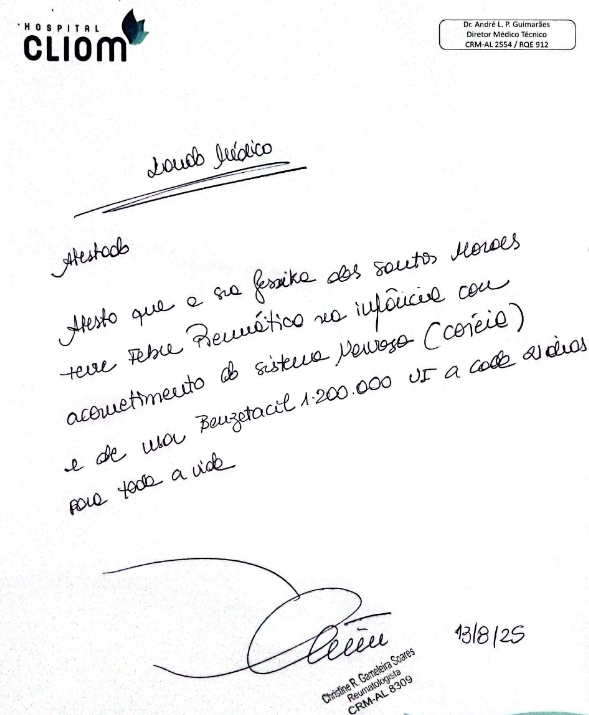 HOSPITAL
CLIOM
Dr. André L. P. Guimarães
Diretor Médico Técnico
CRM-AL 2554 / RQE 912
Laudo Médico
Atestado
Atesto que a sra Jessika dos Santos Moraes
teve Febre Reumática na infância com
acometimento do sistema Nervoso (coréia)
e de usar Benzetacil 1.200.000 UI a cada 21 dias
para toda a vida
13/8/25
Christine R. Gameleira Soares
Reumatologista
CRM-AL 8309